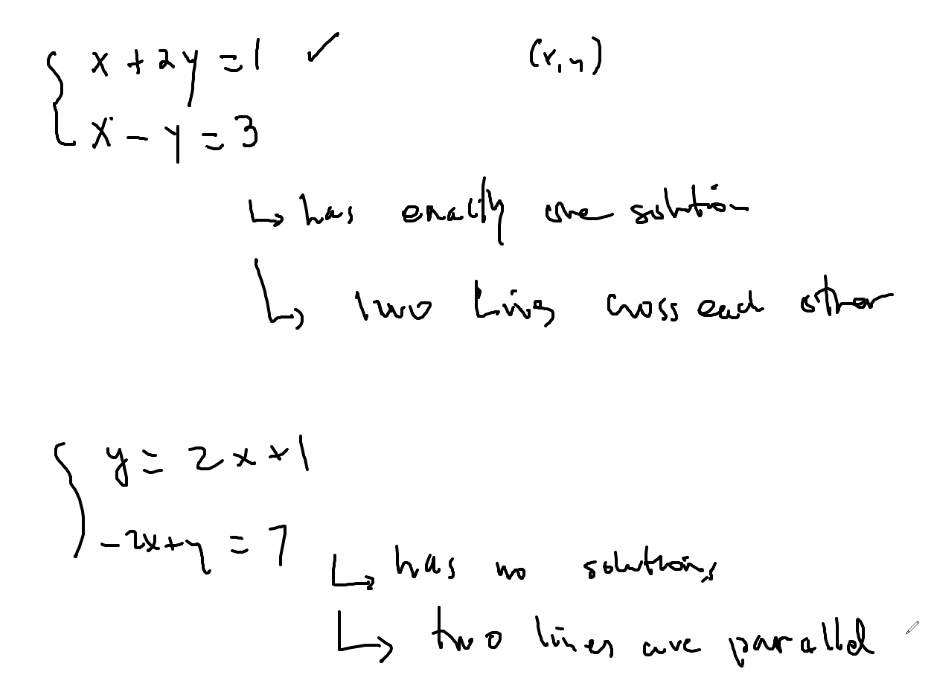 x + 2y = 1 ✓ (x, y)
x - y = 3
↳ has exactly one solution
↳ two lines cross each other
y = 2x + 1
-2x + y = 7
↳ has no solutions
↳ two lines are parallel